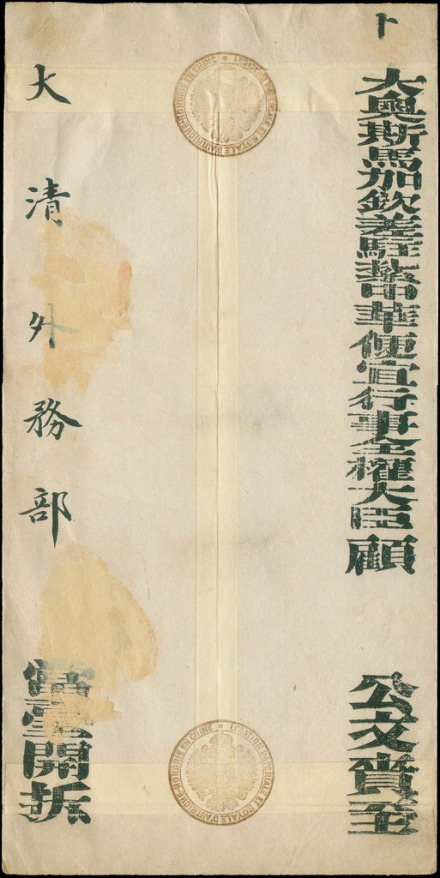 大奧斯馬加欽差駐中華便宜行事全權大臣顧
公文賫至
大清外務部
當堂開拆
LEGATION IMPERIALE ET ROYALE D'AUTRICHE-HONGRIE EN CHINE
LEGATION IMPERIALE ET ROYALE D'AUTRICHE-HONGRIE EN CHINE